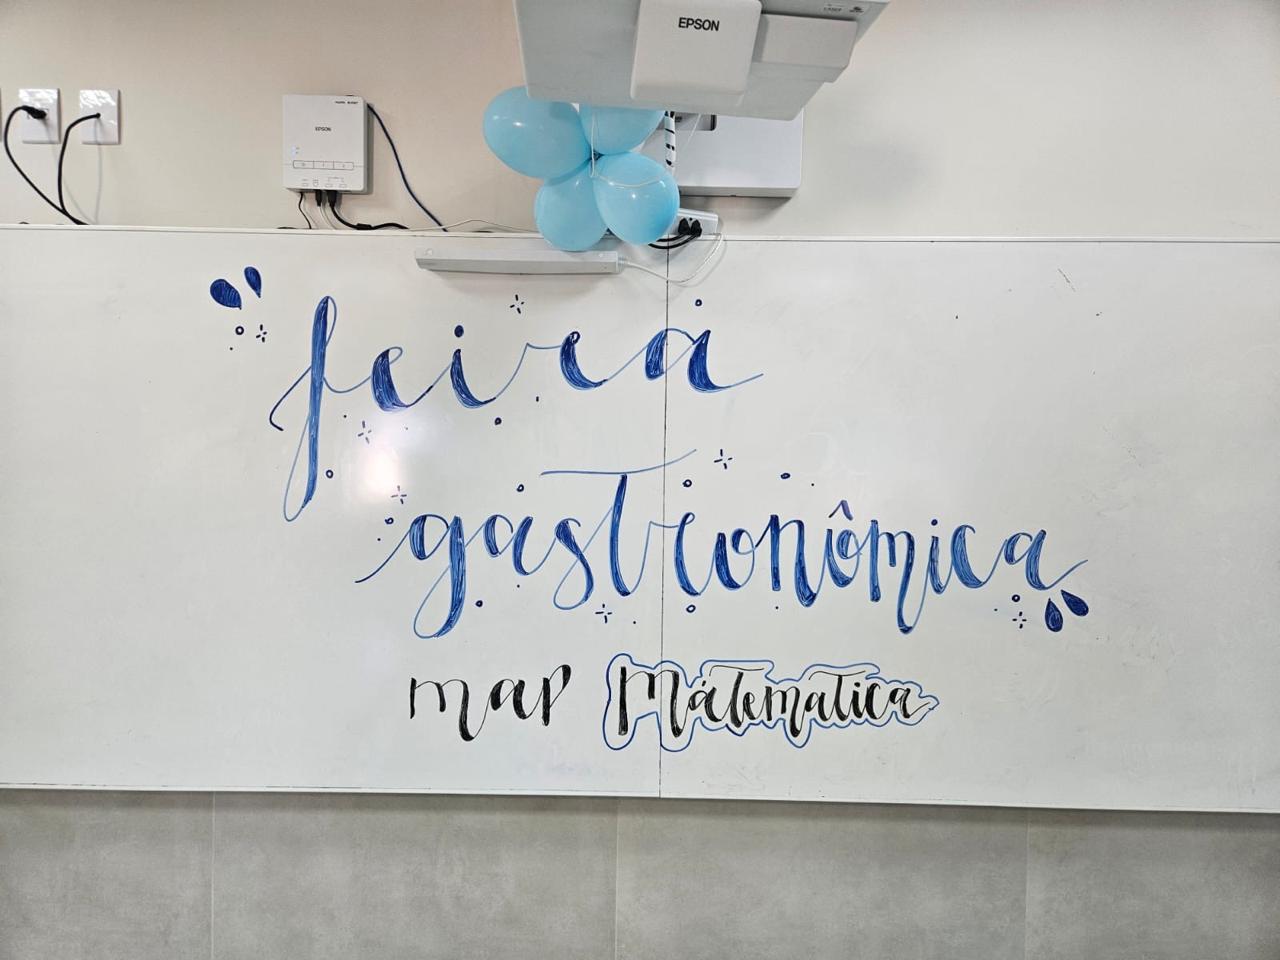 EPSON
EPSON
feira
gastronômica
map Matemática